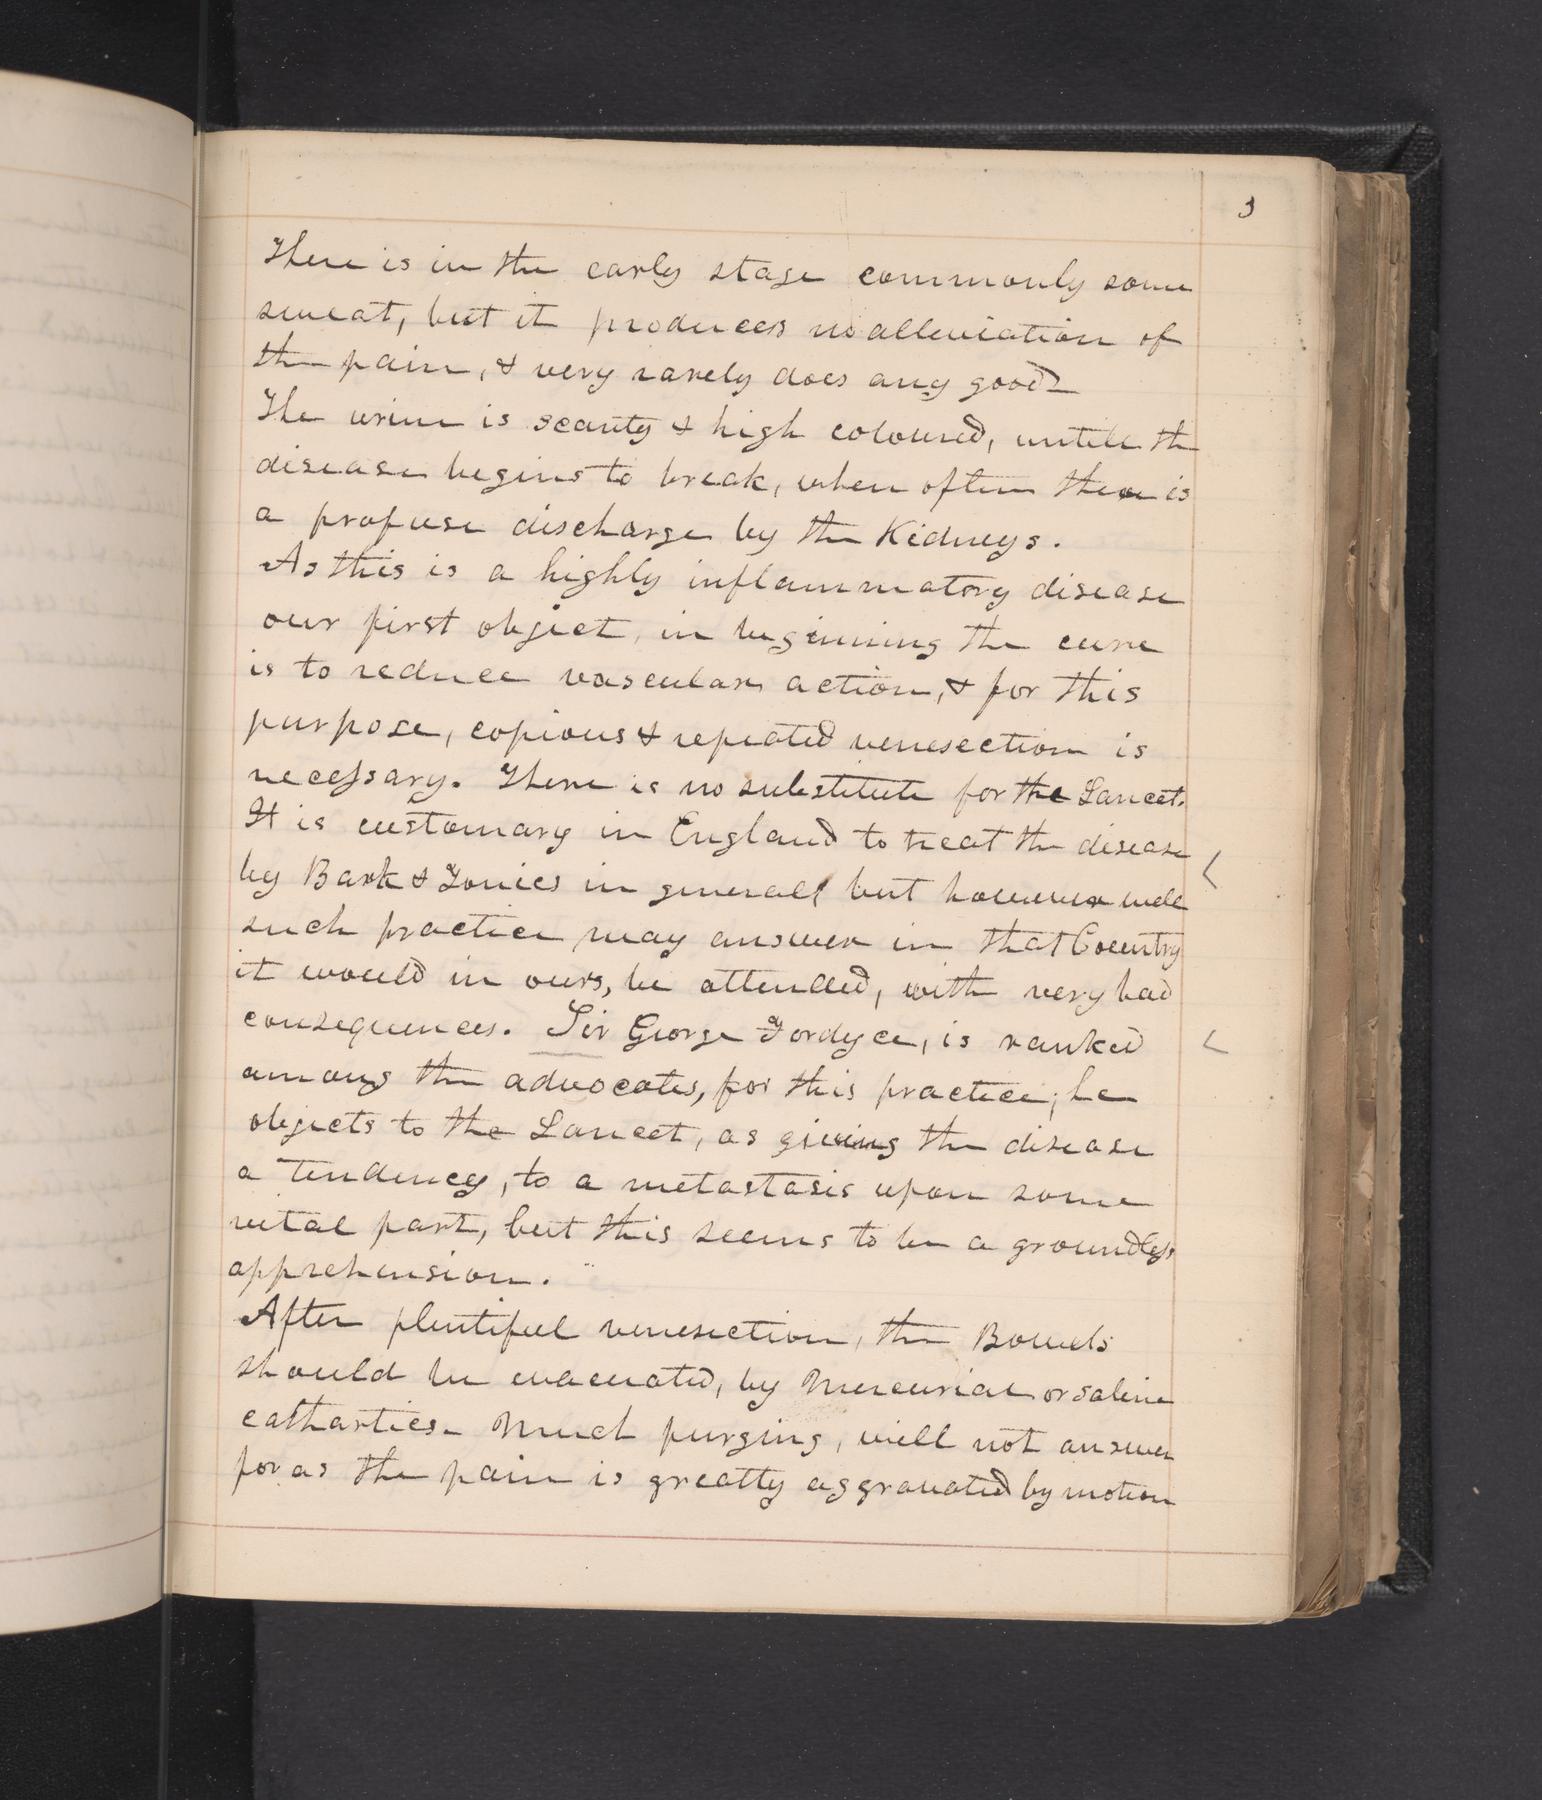 3
There is in the early stage commonly some
sweat, but it produces no alleviation of
the pain, & very rarely does any good
The urine is scanty & high coloured, untill the
disease begins to break, when often there is
a profuse discharge by the Kidneys.
As this is a highly inflammatory disease
our first object, in beginning the cure
is to reduce vascular action, & for this
purpose, copious & repeated venesection is
necessary. There is no substitute for the Lancet.
It is customary in England to treat the disease
by Bark & Tonics in general, but however well
such practice may answer in that Country
it would in ours, be attended, with very bad
consequences. Sir George Fordyce, is ranked
among the advocates, for this practice; he
objects to the Lancet, as giving the disease
a tendency, to a metastasis upon some
vital part, but this seems to be a groundless
apprehension.
After plentiful venesection, the Bowels
should be evacuated, by Mercurial or saline
cathartics. Much purging, will not answer
for as the pain is greatly aggravated by motion